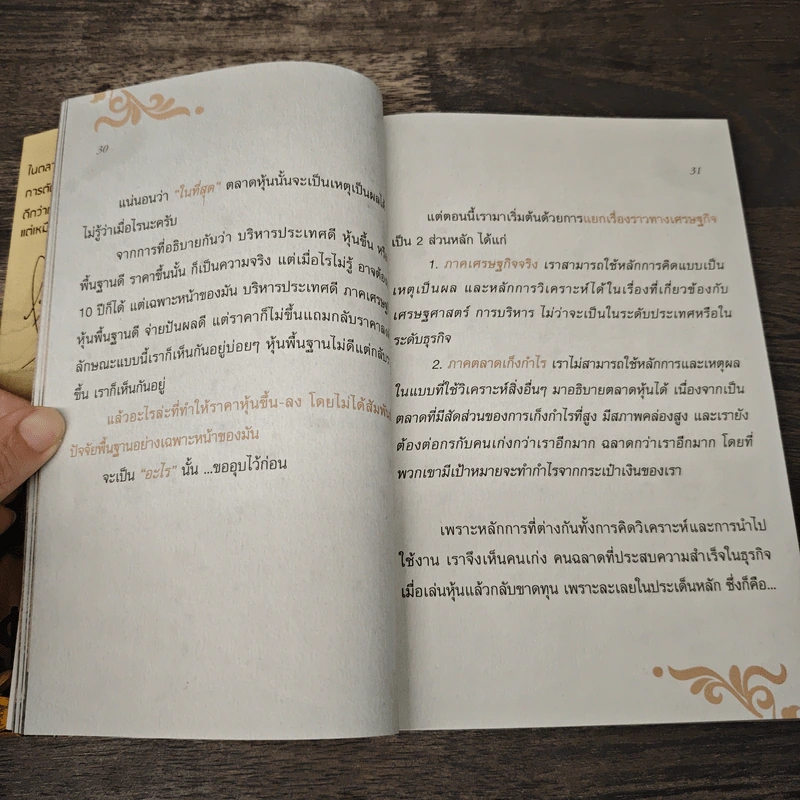 ในตลา
การตัด
ดีกว่าเ
แต่เหมื
30
แน่นอนว่า "ในที่สุด" ตลาดหุ้นนั้นจะเป็นเหตุเป็นผลได้
ไม่รู้ว่าเมื่อไรนะครับ
จากการที่อธิบายกันว่า บริหารประเทศดี หุ้นขึ้น หรือ
พื้นฐานดี ราคาขึ้นนั้น ก็เป็นความจริง แต่เมื่อไรไม่รู้ อาจต้อง
10 ปีก็ได้ แต่เฉพาะหน้าของมัน บริหารประเทศดี ภาคเศรษฐ
หุ้นพื้นฐานดี จ่ายปันผลดี แต่ราคาก็ไม่ขึ้นแถมกลับราคาลง
ลักษณะแบบนี้เราก็เห็นกันอยู่บ่อยๆ หุ้นพื้นฐานไม่ดีแต่กลับรา
ขึ้น เราก็เห็นกันอยู่
แล้วอะไรล่ะที่ทำให้ราคาหุ้นขึ้น-ลง โดยไม่ได้สัมพัน
ปัจจัยพื้นฐานอย่างเฉพาะหน้าของมัน
จะเป็น "อะไร" นั้น ...ขออุบไว้ก่อน
31
แต่ตอนนี้เรามาเริ่มต้นด้วยการแยกเรื่องราวทางเศรษฐกิจ
เป็น 2 ส่วนหลัก ได้แก่
1. ภาคเศรษฐกิจจริง เราสามารถใช้หลักการคิดแบบเป็น
เหตุเป็นผล และหลักการวิเคราะห์ได้ในเรื่องที่เกี่ยวข้องกับ
เศรษฐศาสตร์ การบริหาร ไม่ว่าจะเป็นในระดับประเทศหรือใน
ระดับธุรกิจ
2. ภาคตลาดเก็งกำไร เราไม่สามารถใช้หลักการและเหตุผล
ในแบบที่ใช้วิเคราะห์สิ่งอื่นๆ มาอธิบายตลาดหุ้นได้ เนื่องจากเป็น
ตลาดที่มีสัดส่วนของการเก็งกำไรที่สูง มีสภาพคล่องสูง และเรายัง
ต้องต่อกรกับคนเก่งกว่าเราอีกมาก ฉลาดกว่าเราอีกมาก โดยที่
พวกเขามีเป้าหมายจะทำกำไรจากกระเป๋าเงินของเรา
เพราะหลักการที่ต่างกันทั้งการคิดวิเคราะห์และการนำไป
ใช้งาน เราจึงเห็นคนเก่ง คนฉลาดที่ประสบความสำเร็จในธุรกิจ
เมื่อเล่นหุ้นแล้วกลับขาดทุน เพราะละเลยในประเด็นหลัก ซึ่งก็คือ...